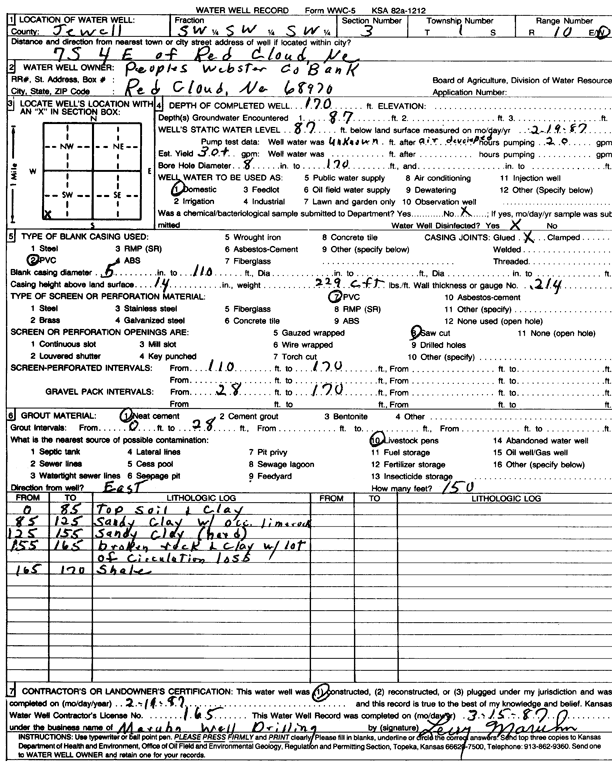 WATER WELL RECORD Form WWC-5 KSA 82a-1212
1 LOCATION OF WATER WELL: Fraction Section Number Township Number Range Number
County: Jewell SW ¼ SW ¼ SW ¼ 3 T 1 S R 10 E/W
Distance and direction from nearest town or city street address of well if located within city?
7S 4E of Red Cloud, Ne
2 WATER WELL OWNER: Peoples Webster Co Bank
RR#, St. Address, Box # : Board of Agriculture, Division of Water Resource
City, State, ZIP Code : Red Cloud, Ne 68970 Application Number:
3 LOCATE WELL'S LOCATION WITH AN "X" IN SECTION BOX:
N
NW NE
W E
SW SE
X
S
1 Mile
4 DEPTH OF COMPLETED WELL 170 ft. ELEVATION:
Depth(s) Groundwater Encountered 1 87 ft. 2. ft. 3. ft.
WELL'S STATIC WATER LEVEL 87 ft. below land surface measured on mo/day/yr 2-19-87
Pump test data: Well water was unknown ft. after air developed hours pumping 20 gpm
Est. Yield 30+ gpm: Well water was ft. after hours pumping gpm
Bore Hole Diameter 8 in. to 170 ft., and in. to ft.
WELL WATER TO BE USED AS: 5 Public water supply 8 Air conditioning 11 Injection well
1 Domestic 3 Feedlot 6 Oil field water supply 9 Dewatering 12 Other (Specify below)
2 Irrigation 4 Industrial 7 Lawn and garden only 10 Observation well
Was a chemical/bacteriological sample submitted to Department? Yes No X ; If yes, mo/day/yr sample was sub
mitted Water Well Disinfected? Yes X No
5 TYPE OF BLANK CASING USED: 5 Wrought iron 8 Concrete tile CASING JOINTS: Glued X Clamped
1 Steel 3 RMP (SR) 6 Asbestos-Cement 9 Other (specify below) Welded
2 PVC 4 ABS 7 Fiberglass Threaded
Blank casing diameter 5 in. to 110 ft., Dia in. to ft., Dia in. to ft.
Casing height above land surface 14 in., weight 229 cft lbs./ft. Wall thickness or gauge No. .214
TYPE OF SCREEN OR PERFORATION MATERIAL: 7 PVC 10 Asbestos-cement
1 Steel 3 Stainless steel 5 Fiberglass 8 RMP (SR) 11 Other (specify)
2 Brass 4 Galvanized steel 6 Concrete tile 9 ABS 12 None used (open hole)
SCREEN OR PERFORATION OPENINGS ARE: 5 Gauzed wrapped 8 Saw cut 11 None (open hole)
1 Continuous slot 3 Mill slot 6 Wire wrapped 9 Drilled holes
2 Louvered shutter 4 Key punched 7 Torch cut 10 Other (specify)
SCREEN-PERFORATED INTERVALS: From 110 ft. to 170 ft., From ft. to ft.
From ft. to ft., From ft. to ft.
GRAVEL PACK INTERVALS: From 28 ft. to 170 ft., From ft. to ft.
From ft. to ft., From ft. to ft.
6 GROUT MATERIAL: 1 Neat cement 2 Cement grout 3 Bentonite 4 Other
Grout Intervals: From 0 ft. to 28 ft., From ft. to ft., From ft. to ft.
What is the nearest source of possible contamination: 10 Livestock pens 14 Abandoned water well
1 Septic tank 4 Lateral lines 7 Pit privy 11 Fuel storage 15 Oil well/Gas well
2 Sewer lines 5 Cess pool 8 Sewage lagoon 12 Fertilizer storage 16 Other (specify below)
3 Watertight sewer lines 6 Seepage pit 9 Feedyard 13 Insecticide storage
Direction from well? East How many feet? 150
FROM TO LITHOLOGIC LOG FROM TO LITHOLOGIC LOG
0 85 Top Soil & Clay
85 125 Sandy Clay w/ occ. limerock
125 155 Sandy Clay (hard)
155 165 broken rock & Clay w/ lot
of Circulation loss
165 170 Shale
7 CONTRACTOR'S OR LANDOWNER'S CERTIFICATION: This water well was (1) constructed, (2) reconstructed, or (3) plugged under my jurisdiction and was
completed on (mo/day/year) 2-19-87 and this record is true to the best of my knowledge and belief. Kansas
Water Well Contractor's License No. 165 This Water Well Record was completed on (mo/day/yr) 3-15-87
under the business name of Maruhn Well Drilling by (signature) Leroy Maruhn
INSTRUCTIONS: Use typewriter or ball point pen. PLEASE PRESS FIRMLY and PRINT clearly. Please fill in blanks, underline or circle the correct answers. Send top three copies to Kansas
Department of Health and Environment, Office of Oil Field and Environmental Geology, Regulation and Permitting Section, Topeka, Kansas 66620-7500, Telephone: 913-862-9360. Send one
to WATER WELL OWNER and retain one for your records.